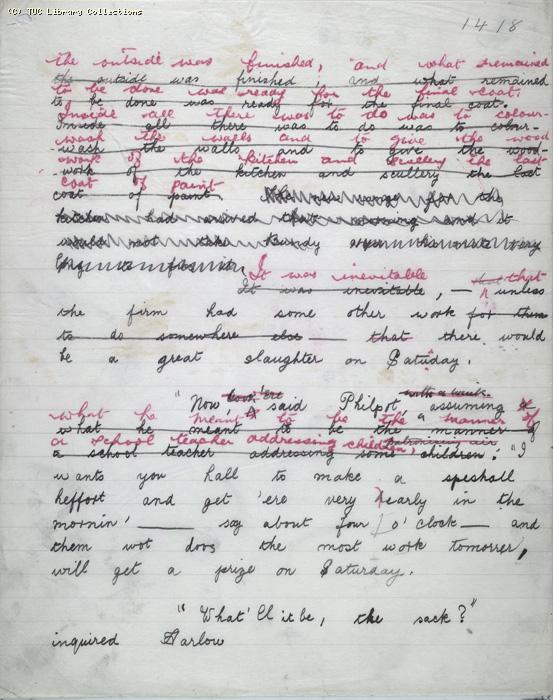 (C) TUC Library Collections
1418
the outside was finished, and what remained
the outside was finished, and what remained
to be done was ready for the final coat.
to be done was ready for the final coat.
Inside all there was to do was to colour-
Inside all there was to do was to colour-
wash the walls and to give the wood
-wash the walls and to give the wood-
work of the kitchen and scullery the last
-work of the kitchen and scullery the last
coat of paint
coat of paint. for the
kitchen had arrived that morning and it
would not take Bundy very
long
It was inevitable that that
It was inevitable, — unless
the firm had some other work for them
to do somewhere else — that there would
be a great slaughter on Saturday.
"Now, said Philpot, assuming
what he meant to be the manner of
what he meant to be the manner of
a school teacher addressing children,
a school teacher addressing some children: "I
wants you hall to make a speshall
heffort and get 'ere very hearly in the
mornin' —— say about four o'clock — and
them wot doos the most work tomorrer,
will get a prize on Saturday.
"What'll it be, the sack?"
inquired Harlow